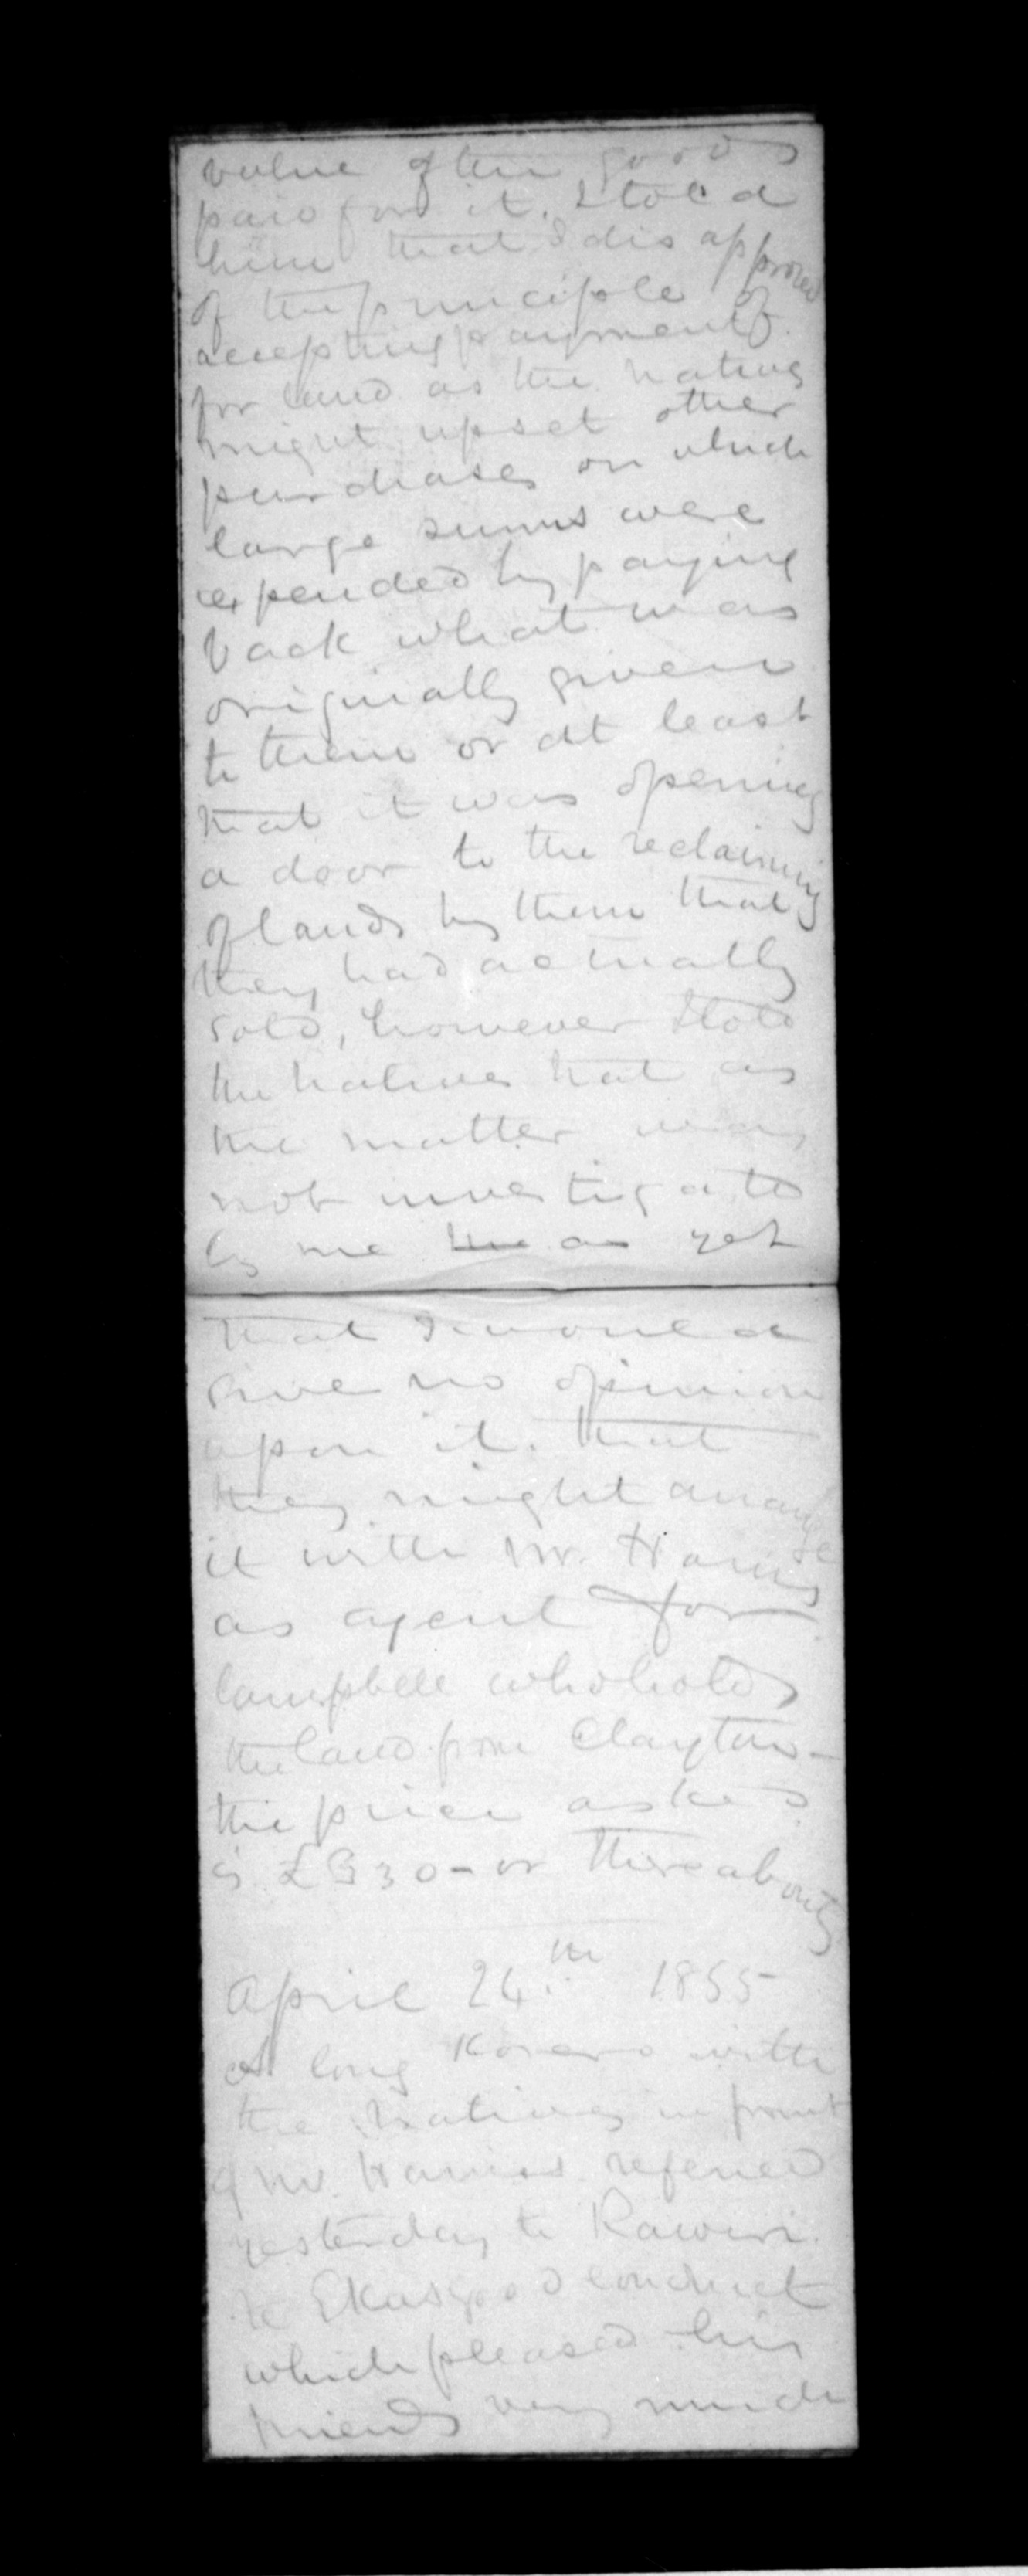 value of the goods
paid for it. I told
him that I disapproved
of the principle of
accepting payment
for land as the natives
might upset other
purchases on which
large sums were
expended by paying
back what was
originally given
to them or at least
that it was opening
a door to the reclaiming
of lands by them that
they had actually
sold, however I told
the natives that as
the matter was
not investigated
by me the as yet
that I would
give no opinion
upon it. that
they might arrange
it with Mr. Harris
as agent for
Campbell who holds
the land from Clayton -
the price asked
is £330 - or thereabouts
April 24th 1855
A long Korero with
the natives in front
of Mr. Harris. referred
yesterday to Rawiri
te good conduct
which pleased his
friends very much